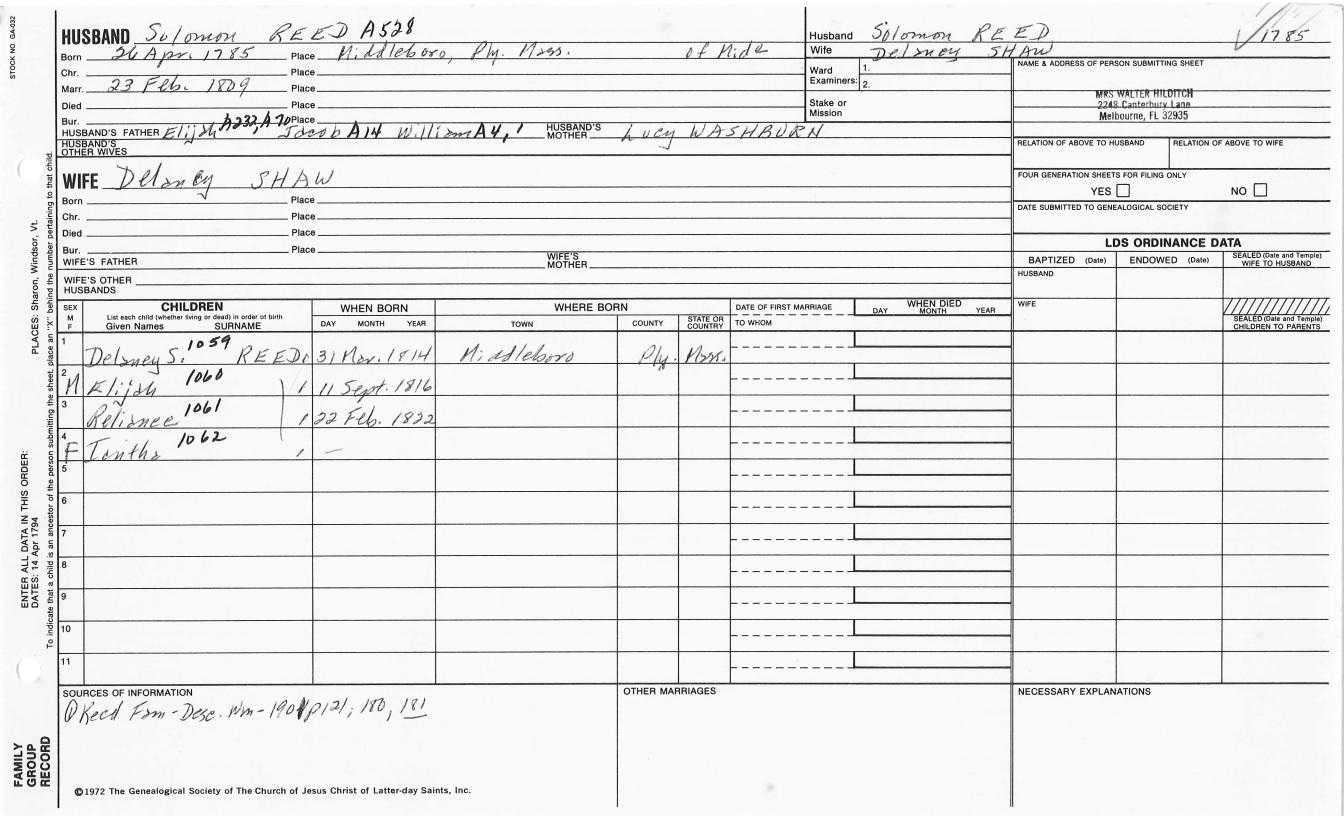 STOCK NO. GA-032
HUSBAND Solomon REED A528
Born 26 Apr. 1785 Place Middleboro, Ply. Mass. of Mide
Chr. Place
Marr. 23 Feb. 1809 Place
Died Place
Bur. Place
HUSBAND'S FATHER Elijah A232, A70 Jacob A14 William A4, 1 HUSBAND'S MOTHER Lucy WASHBURN
HUSBAND'S OTHER WIVES
WIFE Delaney SHAW
Born Place
Chr. Place
Died Place
Bur. Place
WIFE'S FATHER WIFE'S MOTHER
WIFE'S OTHER HUSBANDS
Husband Solomon REED 1785
Wife Delaney SHAW
Ward Examiners: 1.
2.
Stake or Mission
NAME & ADDRESS OF PERSON SUBMITTING SHEET
MRS WALTER HILDITCH
2248 Canterbury Lane
Melbourne, FL 32935
RELATION OF ABOVE TO HUSBAND RELATION OF ABOVE TO WIFE
FOUR GENERATION SHEETS FOR FILING ONLY
YES NO
DATE SUBMITTED TO GENEALOGICAL SOCIETY
LDS ORDINANCE DATA
BAPTIZED (Date) ENDOWED (Date) SEALED (Date and Temple) WIFE TO HUSBAND
HUSBAND
WIFE
SEALED (Date and Temple) CHILDREN TO PARENTS
SEX M F CHILDREN WHEN BORN WHERE BORN DATE OF FIRST MARRIAGE WHEN DIED
List each child (whether living or dead) in order of birth
Given Names SURNAME DAY MONTH YEAR TOWN COUNTY STATE OR COUNTRY TO WHOM DAY MONTH YEAR
1 Delaney S. 1059 REED 1 31 Mar. 1814 Middleboro Ply. Mass.
2 M Elijah 1060 1 11 Sept. 1816
3 Reliance 1061 1 22 Feb. 1822
4 F Iantha 1062 1 —
5
6
7
8
9
10
11
SOURCES OF INFORMATION OTHER MARRIAGES NECESSARY EXPLANATIONS
① Reed Fam - Desc. Wm - 1901 p 121, 180, 181
©1972 The Genealogical Society of The Church of Jesus Christ of Latter-day Saints, Inc.
FAMILY GROUP RECORD
ENTER ALL DATA IN THIS ORDER:
DATES: 14 Apr 1794 PLACES: Sharon, Windsor, Vt.
To indicate that a child is an ancestor of the person submitting the sheet, place an "X" behind the number pertaining to that child.